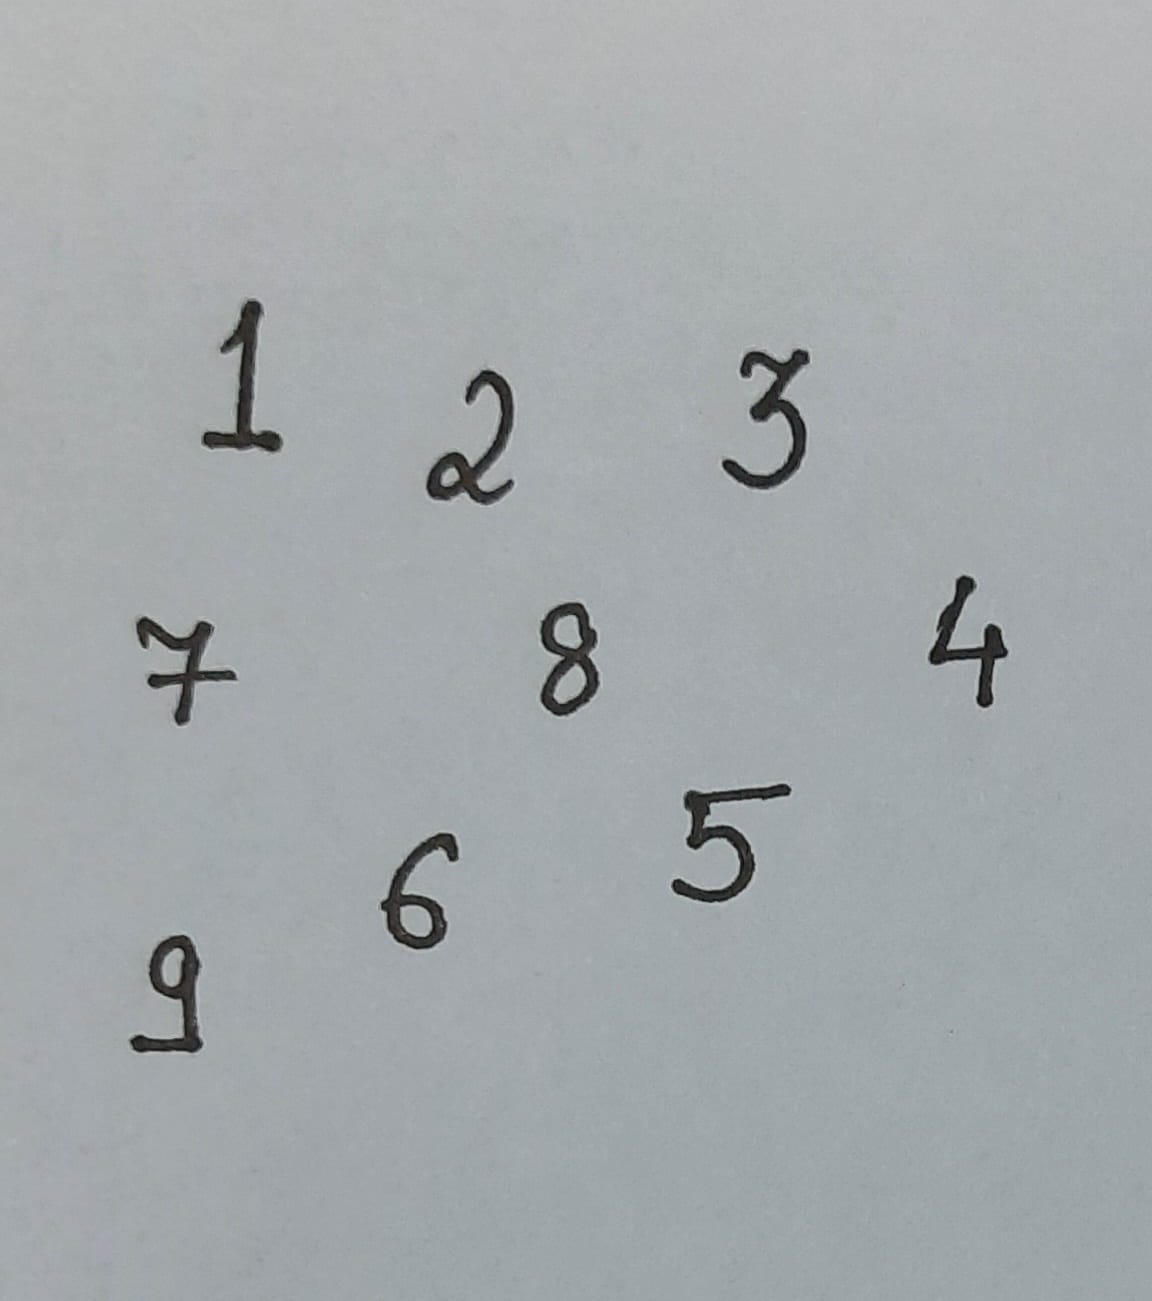 1 2 3
7 8 4
6 5
9